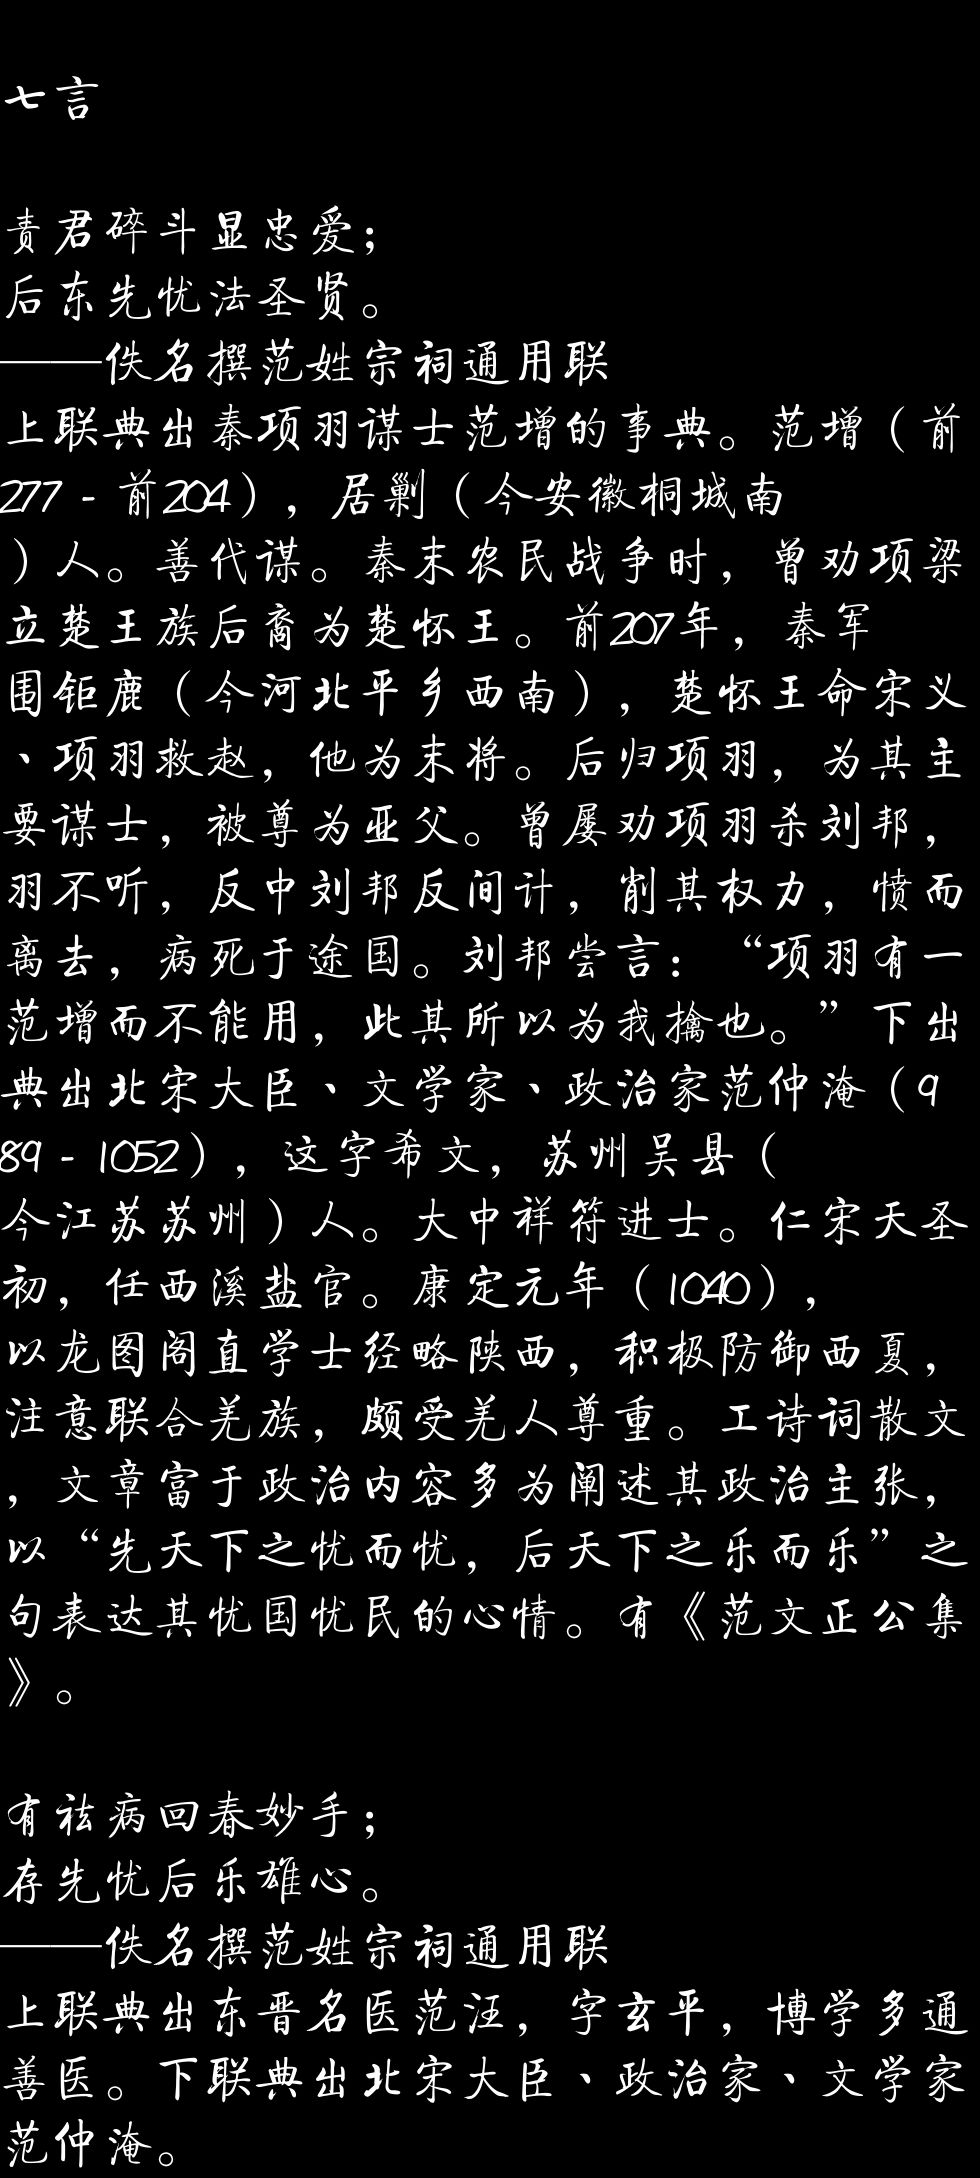 七言
责君碎斗显忠爱；
后东先忧法圣贤。
——佚名撰范姓宗祠通用联
上联典出秦项羽谋士范增的事典。范增（前
277－前204），居剿（今安徽桐城南
）人。善代谋。秦末农民战争时，曾劝项梁
立楚王族后裔为楚怀王。前207年，秦军
围钜鹿（今河北平乡西南），楚怀王命宋义
、项羽救赵，他为末将。后归项羽，为其主
要谋士，被尊为亚父。曾屡劝项羽杀刘邦，
羽不听，反中刘邦反间计，削其权力，愤而
离去，病死于途国。刘邦尝言：“项羽有一
范增而不能用，此其所以为我擒也。”下出
典出北宋大臣、文学家、政治家范仲淹（9
89－1052），这字希文，苏州吴县（
今江苏苏州）人。大中祥符进士。仁宋天圣
初，任西溪盐官。康定元年（1040），
以龙图阁直学士经略陕西，积极防御西夏，
注意联合羌族，颇受羌人尊重。工诗词散文
，文章富于政治内容多为阐述其政治主张，
以“先天下之忧而忧，后天下之乐而乐”之
句表达其忧国忧民的心情。有《范文正公集
》。
有祛病回春妙手；
存先忧后乐雄心。
——佚名撰范姓宗祠通用联
上联典出东晋名医范汪，字玄平，博学多通
善医。下联典出北宋大臣、政治家、文学家
范仲淹。